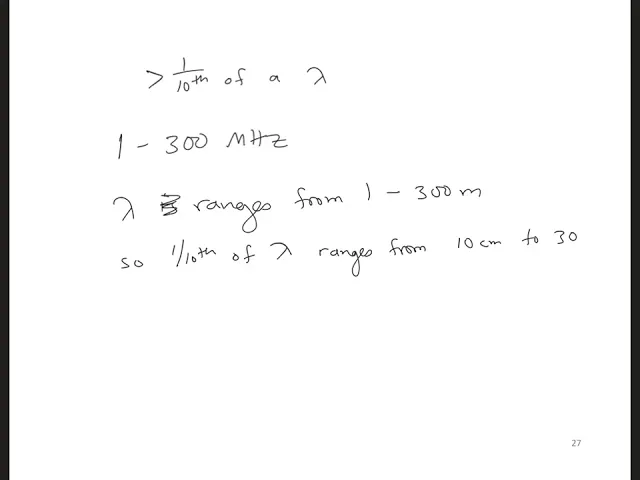 > 1/10th of a λ
1 - 300 MHZ
λ ranges from 1 - 300 m
so 1/10th of λ ranges from 10 cm to 30
27